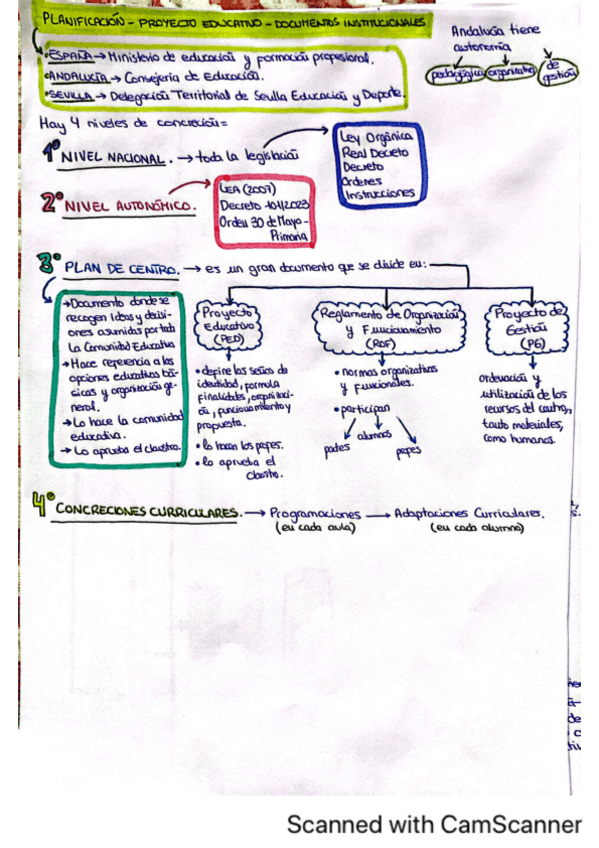 PLANIFICACIÓN - PROYECTO EDUCATIVO - DOCUMENTOS INSTITUCIONALES
Andalucía tiene
autonomía
pedagógica organizativa de
gestión
• ESPAÑA → Ministerio de educación y formación profesional.
• ANDALUCÍA → Consejería de Educación.
• SEVILLA → Delegación Territorial de Sevilla Educación y Deporte.
Hay 4 niveles de concreción =
1º NIVEL NACIONAL. → toda la legislación
Ley Orgánica
Real Decreto
Decreto
Órdenes
Instrucciones
2º NIVEL AUTONÓMICO.
LEA (2007)
Decreto 101/2023
Orden 30 de Mayo -
Primaria
3º PLAN DE CENTRO. → es un gran documento que se divide en:
→ Documento donde se
recogen ideas y decisi-
ones asumidas por toda
la Comunidad Educativa
→ Hace referencia a las
opciones educativas bá-
sicas y organización ge-
neral.
→ Lo hace la comunidad
educativa.
→ Lo aprueba el claustro.
Proyecto
Educativo
(PED)
• define las señas de
identidad, formula
finalidades, organizaci-
ón, funcionamiento y
propuesta.
• lo hacen los profes.
• lo aprueba el
claustro.
Reglamento de Organización
y Funcionamiento
(ROF)
• normas organizativas
y funcionales.
• participan
padres alumnos profes
Proyecto de
Gestión
(PG)
ordenación y
utilización de los
recursos del centro,
tanto materiales,
como humanos.
4º CONCRECIONES CURRICULARES. → Programaciones → Adaptaciones Curriculares.
(en cada aula) (en cada alumno)
Scanned with CamScanner